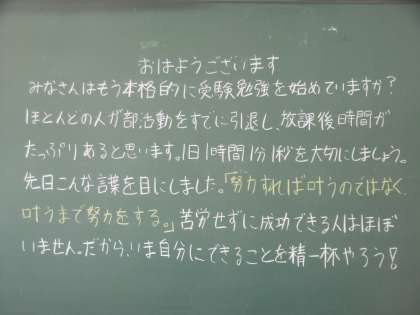 おはようございます
みなさんはもう本格的に受験勉強を始めていますか？
ほとんどの人が部活動をすでに引退し、放課後時間が
たっぷりあると思います。1日1時間1分1秒を大切にしましょう。
先日こんな言葉を目にしました。「努力すれば叶うのではなく、
叶うまで努力をする。」苦労せずに成功できる人はほぼ
いません。だから、いま自分にできることを精一杯やろう！